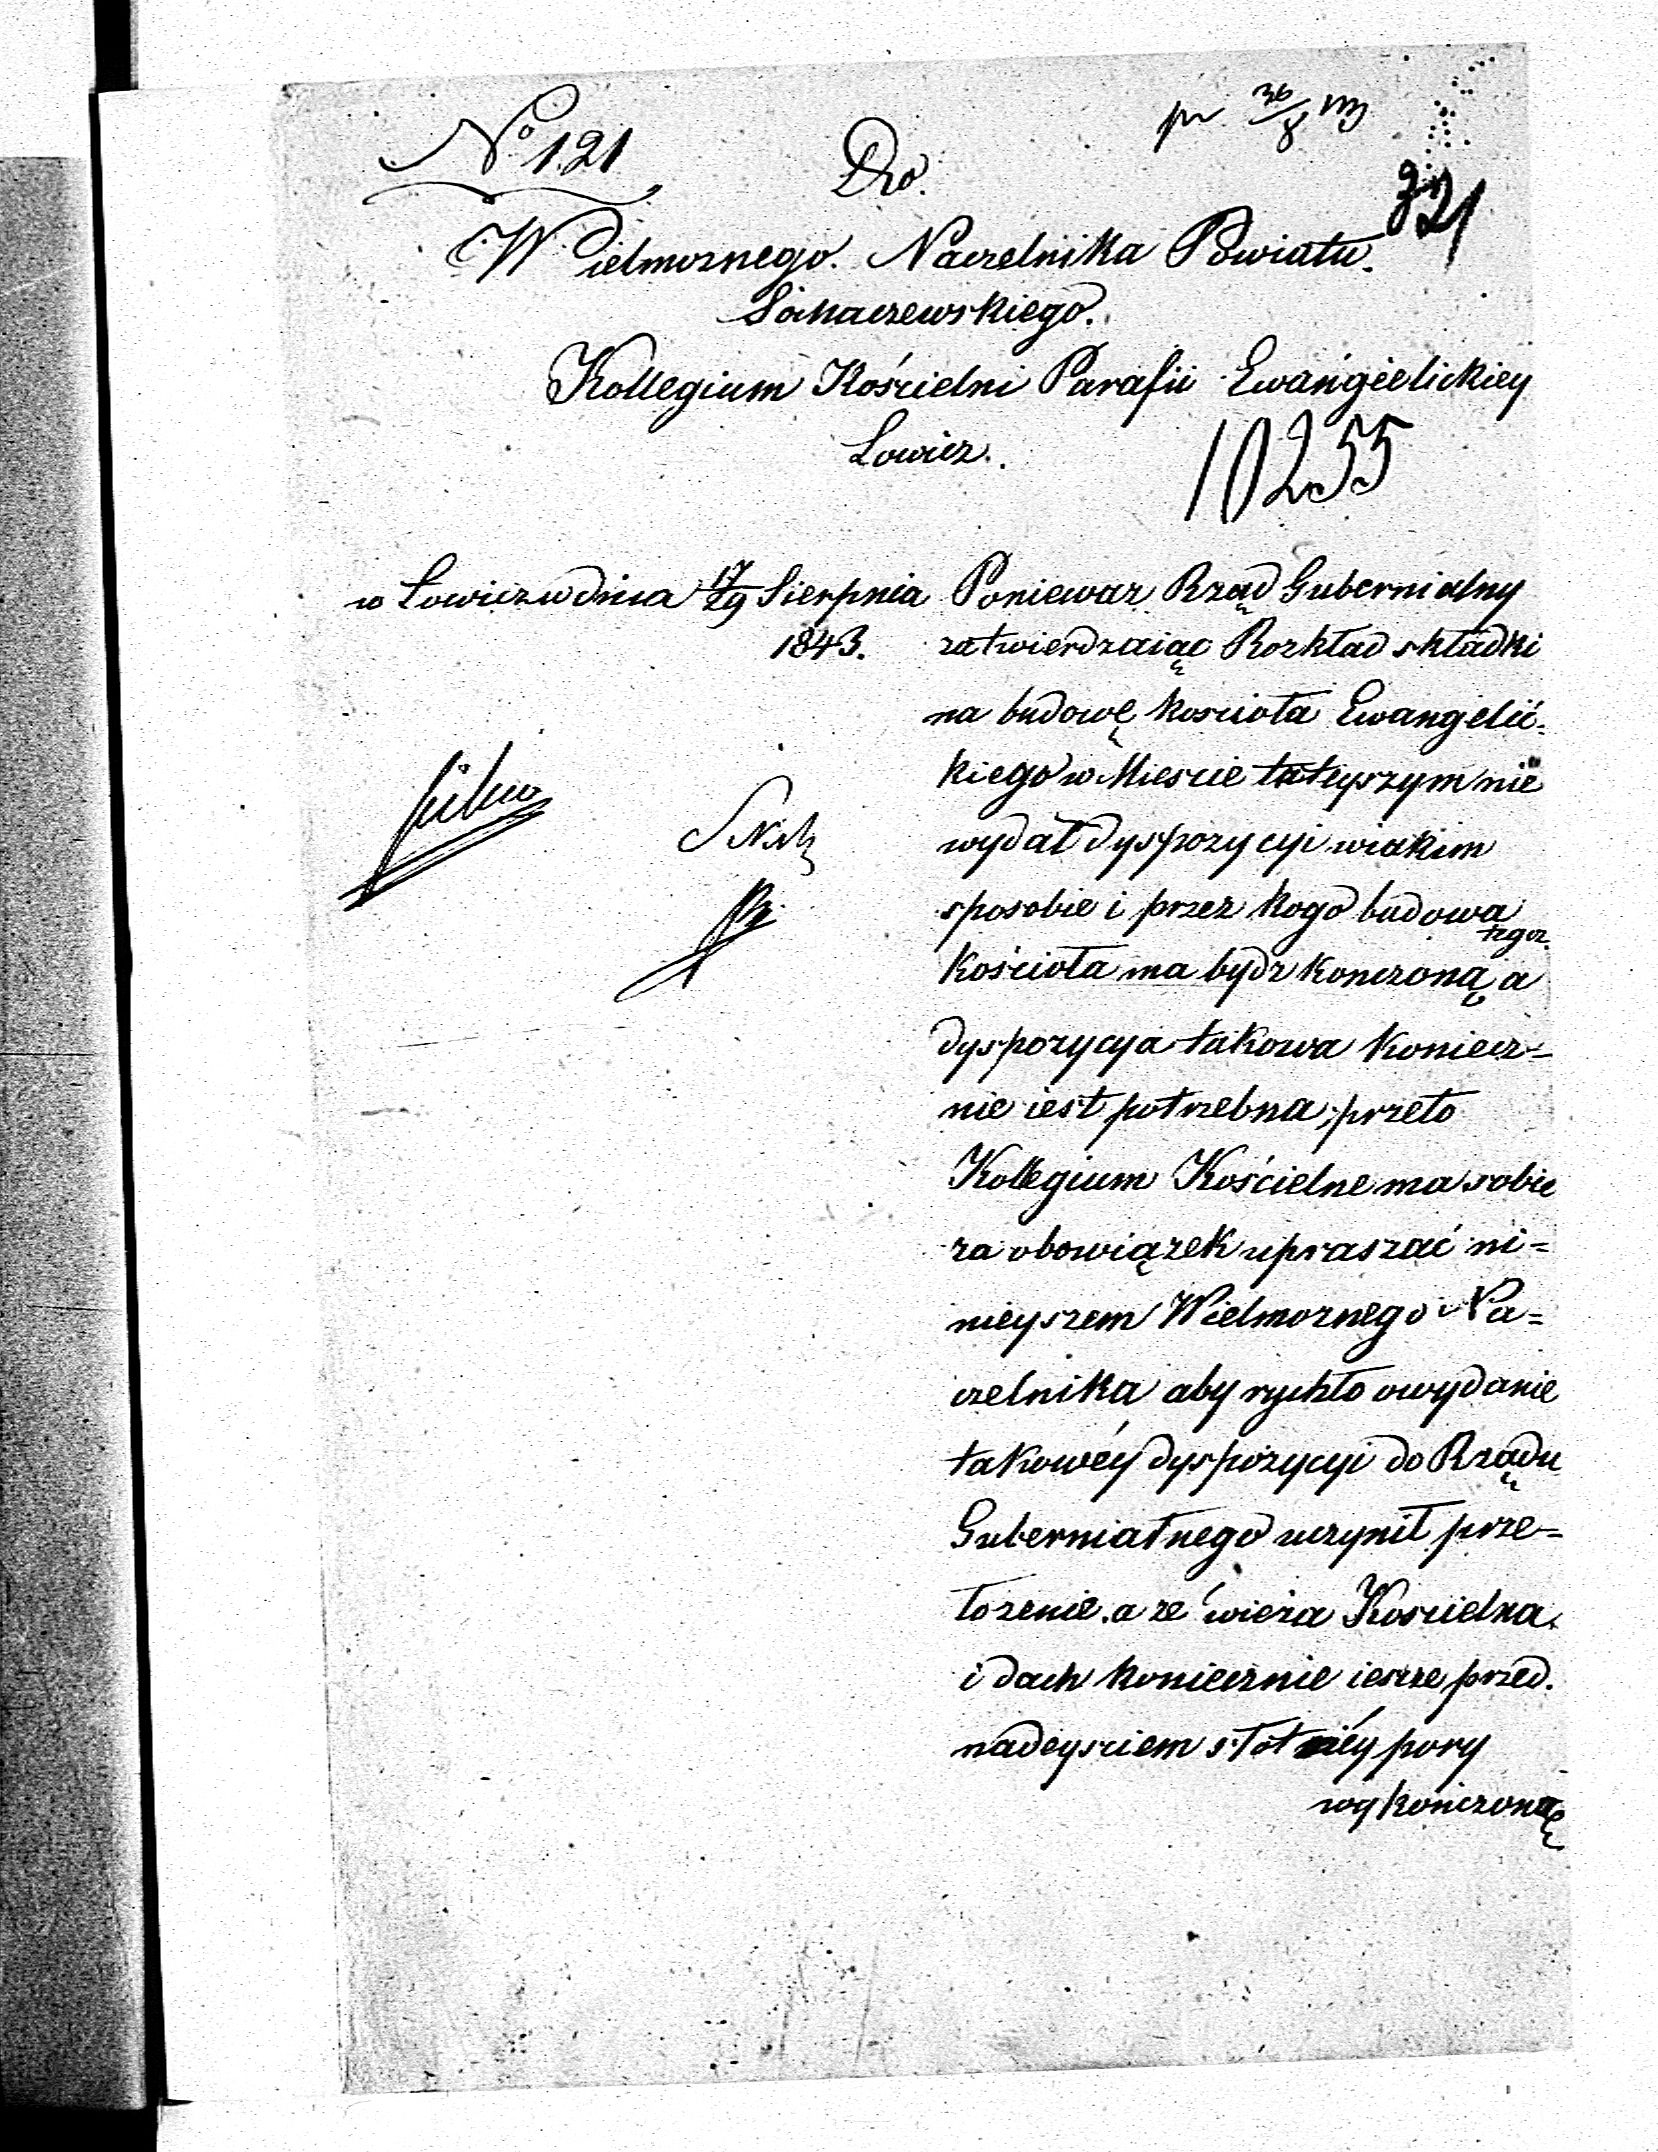 No 121
pr 30/8 43
321
Do.
Wielmoznego. Naczelnika Powiatu.
Sochaczewskiego.
Kollegium Kościelni Parafii Ewangielickiey
Lowicz.
10255
w Lowiczu dnia 17/29 Sierpnia
1843.
Poniewaz Rząd Gubernialny
zatwierdzaiąc Rozkład składki
na budowę kosciola Ewangelic-
kiego w Miescie tuteyszym nie
wydał dyspozycyi wiakim
sposobie i przez kogo budowa
tegoz
Kościoła ma bydz konczoną a
dyspozycya takowa koniecz=
nie iest potrzebna, przeto
Kollegium Kościelne ma sobie
za obowiązek upraszać ni=
nieyszem Wielmoznego Na=
czelnika aby rychło owydanie
takowéy dyspozycyi do Rządu
Guberniałnego uczynił prze=
łozenie. a ze wieza Koscielna
i dach koniecznie iescze przed.
nadeysciem słotnéy pory
wykończoną